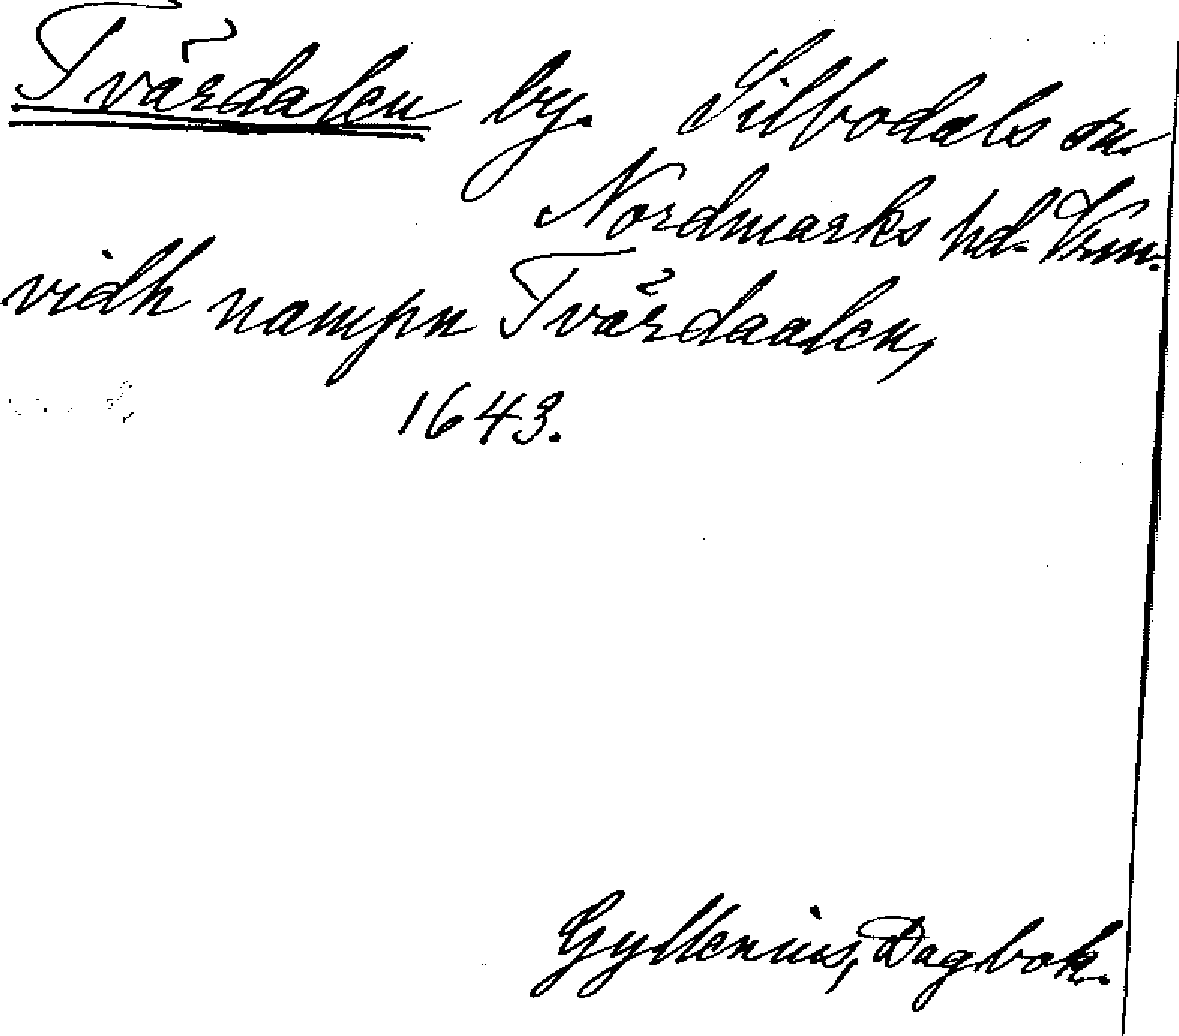 Tvärdalen by. Silbodals sn.
Nordmarks hd. Vrm.
vidh nampn Tvärdaalen,
1643.
Gyllenius, Dagbok.